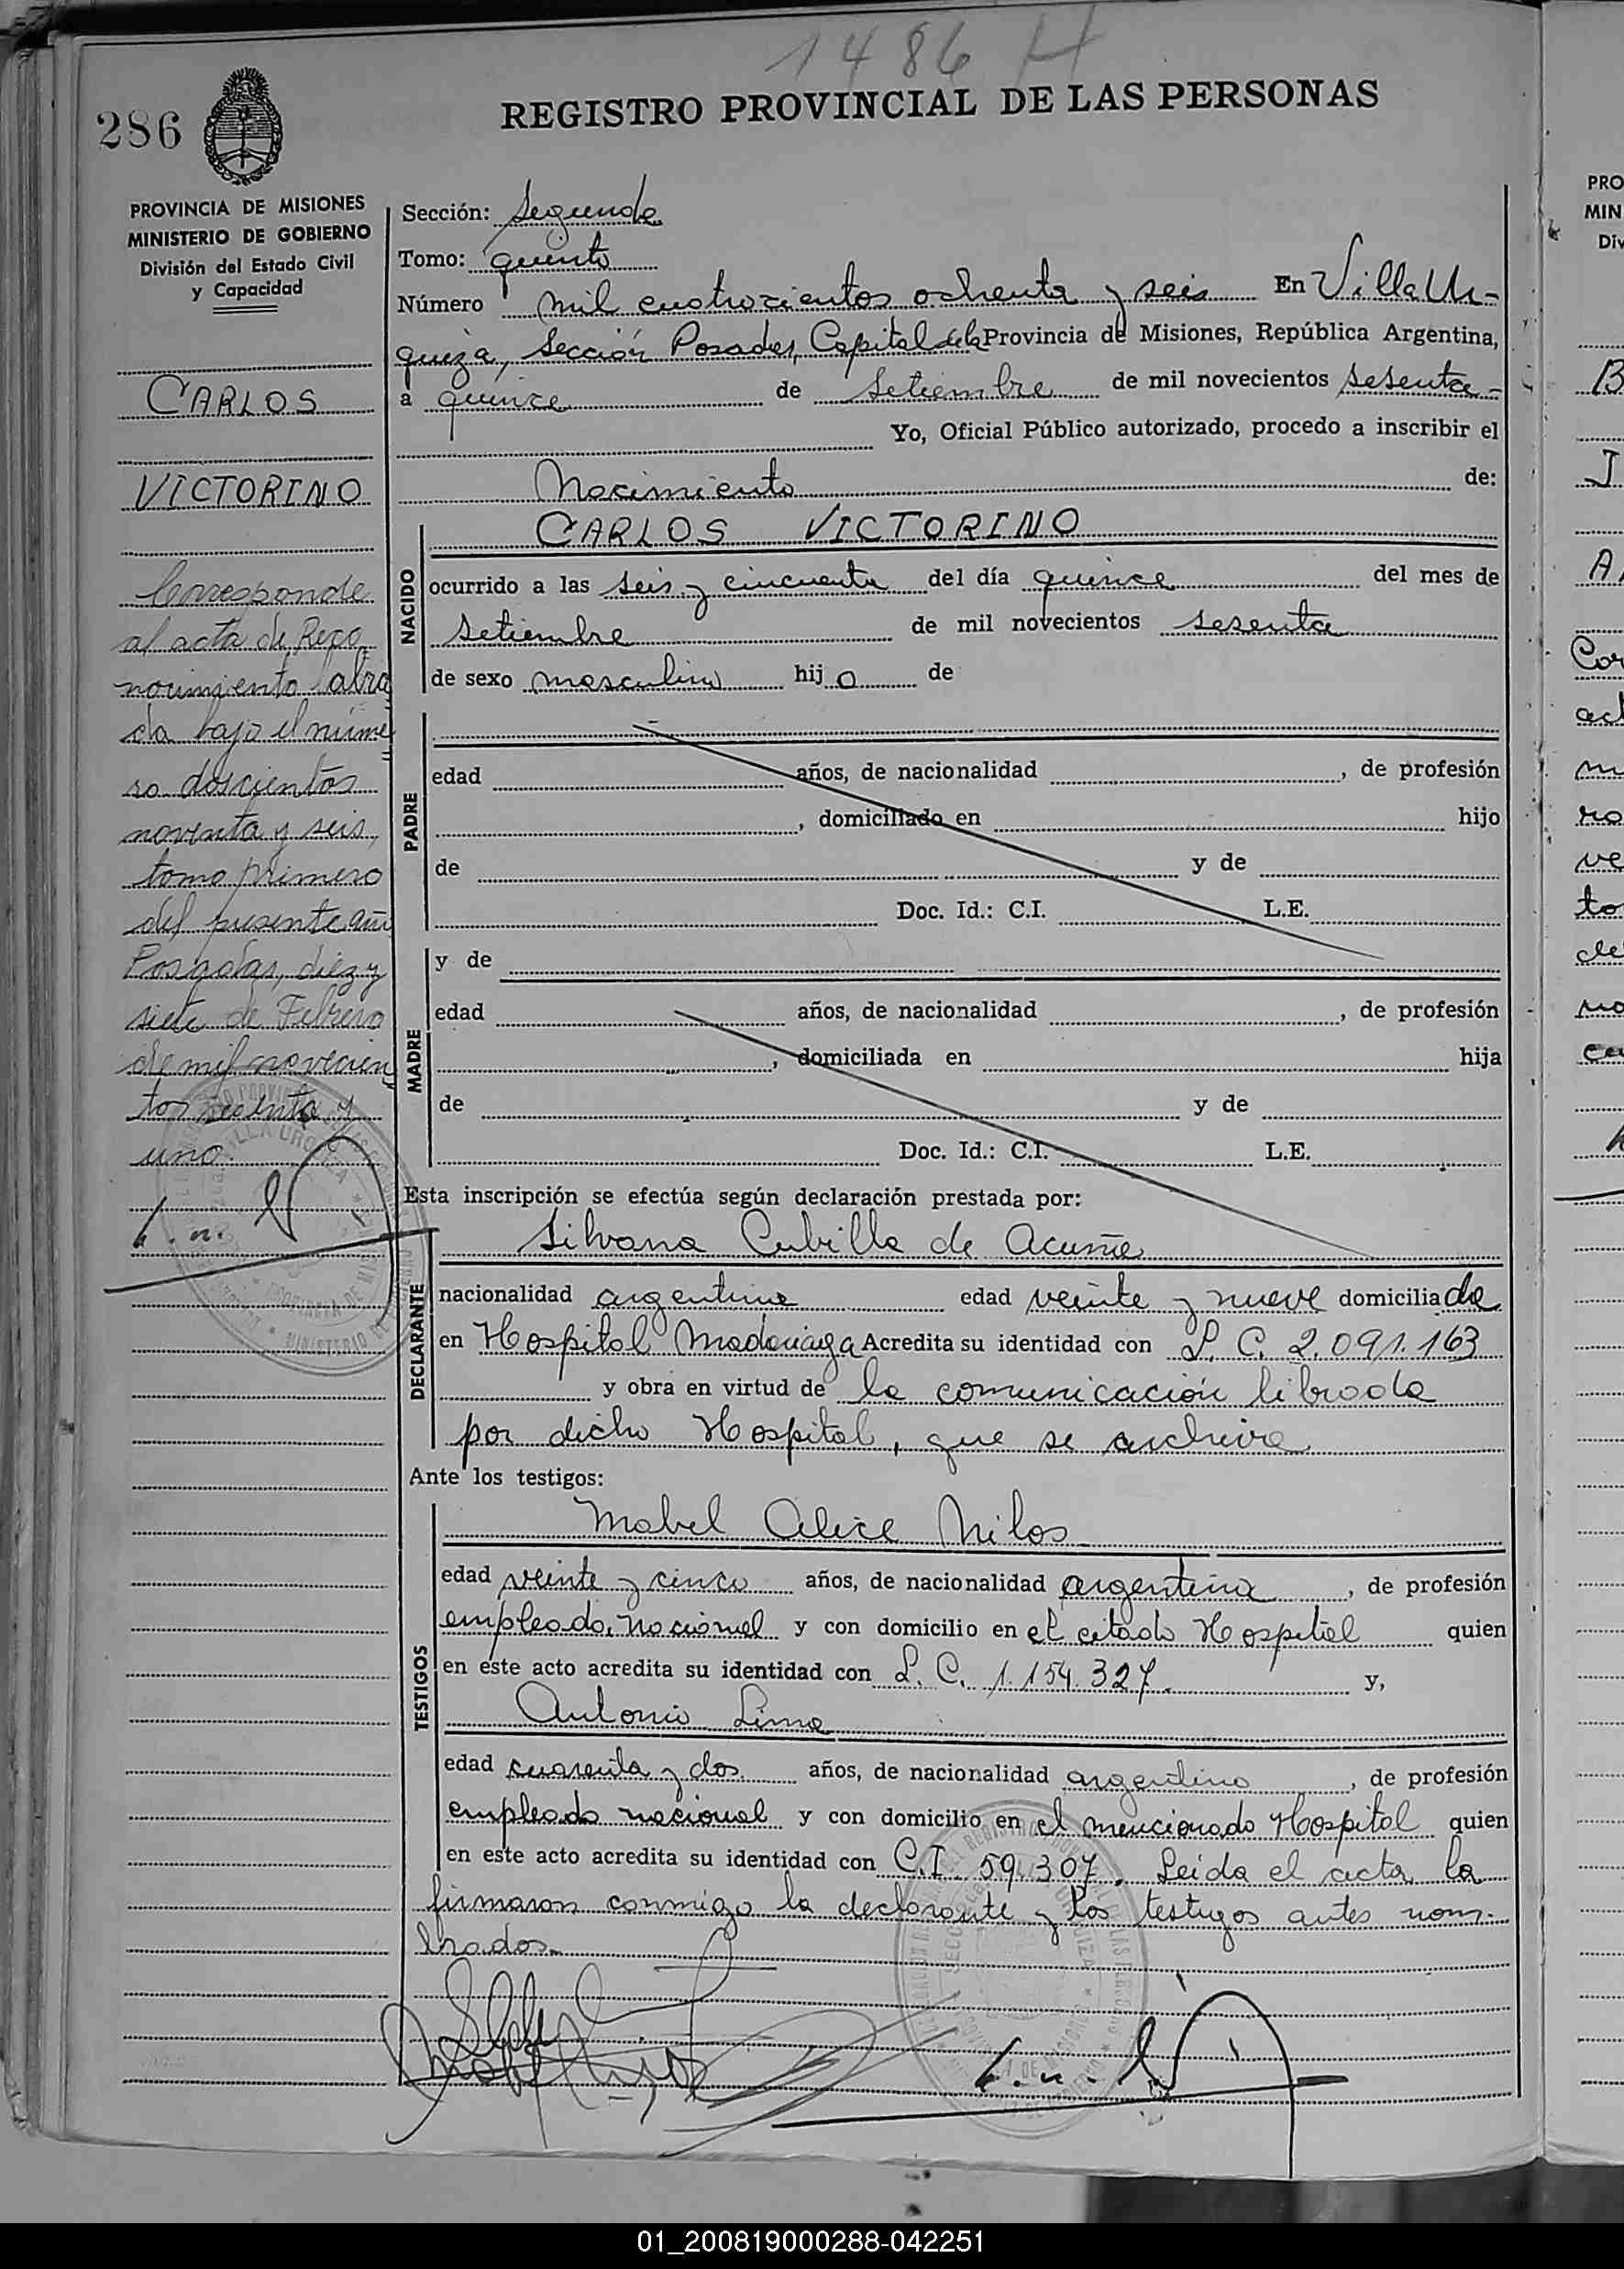 1486 H
286
REGISTRO PROVINCIAL DE LAS PERSONAS
PROVINCIA DE MISIONES
MINISTERIO DE GOBIERNO
División del Estado Civil
y Capacidad
CARLOS
VICTORINO
Corresponde
al acta de Reco
nocimiento labra
da bajo el núme
ro doscientos
noventa y seis,
tomo primero
del presente año
Posadas, diez y
siete de Febrero
de mil novecien
tos sesenta y
uno.
Sección: Segunda
Tomo: quinto
Número mil cuatrocientos ochenta y seis En Villa Ur-
quiza, Sección Posadas, Capital de la Provincia de Misiones, República Argentina,
a quince de Setiembre de mil novecientos sesenta-
Yo, Oficial Público autorizado, procedo a inscribir el
Nacimiento de:
NACIDO
CARLOS VICTORINO
ocurrido a las seis y cincuenta del día quince del mes de
Setiembre de mil novecientos sesenta
de sexo masculino hijo de
PADRE
edad años, de nacionalidad , de profesión
, domiciliado en hijo
de y de
Doc. Id.: C.I. L.E.
MADRE
y de
edad años, de nacionalidad , de profesión
, domiciliada en hija
de y de
Doc. Id.: C.I. L.E.
Esta inscripción se efectúa según declaración prestada por:
DECLARANTE
Silvana Cubilla de Acuña
nacionalidad argentina edad veinte y nueve domiciliada
en Hospital Madariaga Acredita su identidad con L. C. 2.091.163
y obra en virtud de la comunicación librada
por dicho Hospital, que se archiva
Ante los testigos:
TESTIGOS
Mabel Alice Milos
edad veinte y cinco años, de nacionalidad argentina, de profesión
empleada nacional y con domicilio en el citado Hospital quien
en este acto acredita su identidad con L. C. 1.154.327. y,
Antonio Lima
edad cuarenta y dos años, de nacionalidad argentino, de profesión
empleado nacional y con domicilio en el mencionado Hospital quien
en este acto acredita su identidad con C.I. 59.307. Leída el acta, la
firmaron conmigo la declarante y los testigos antes nom-
brados.
01_200819000288-042251